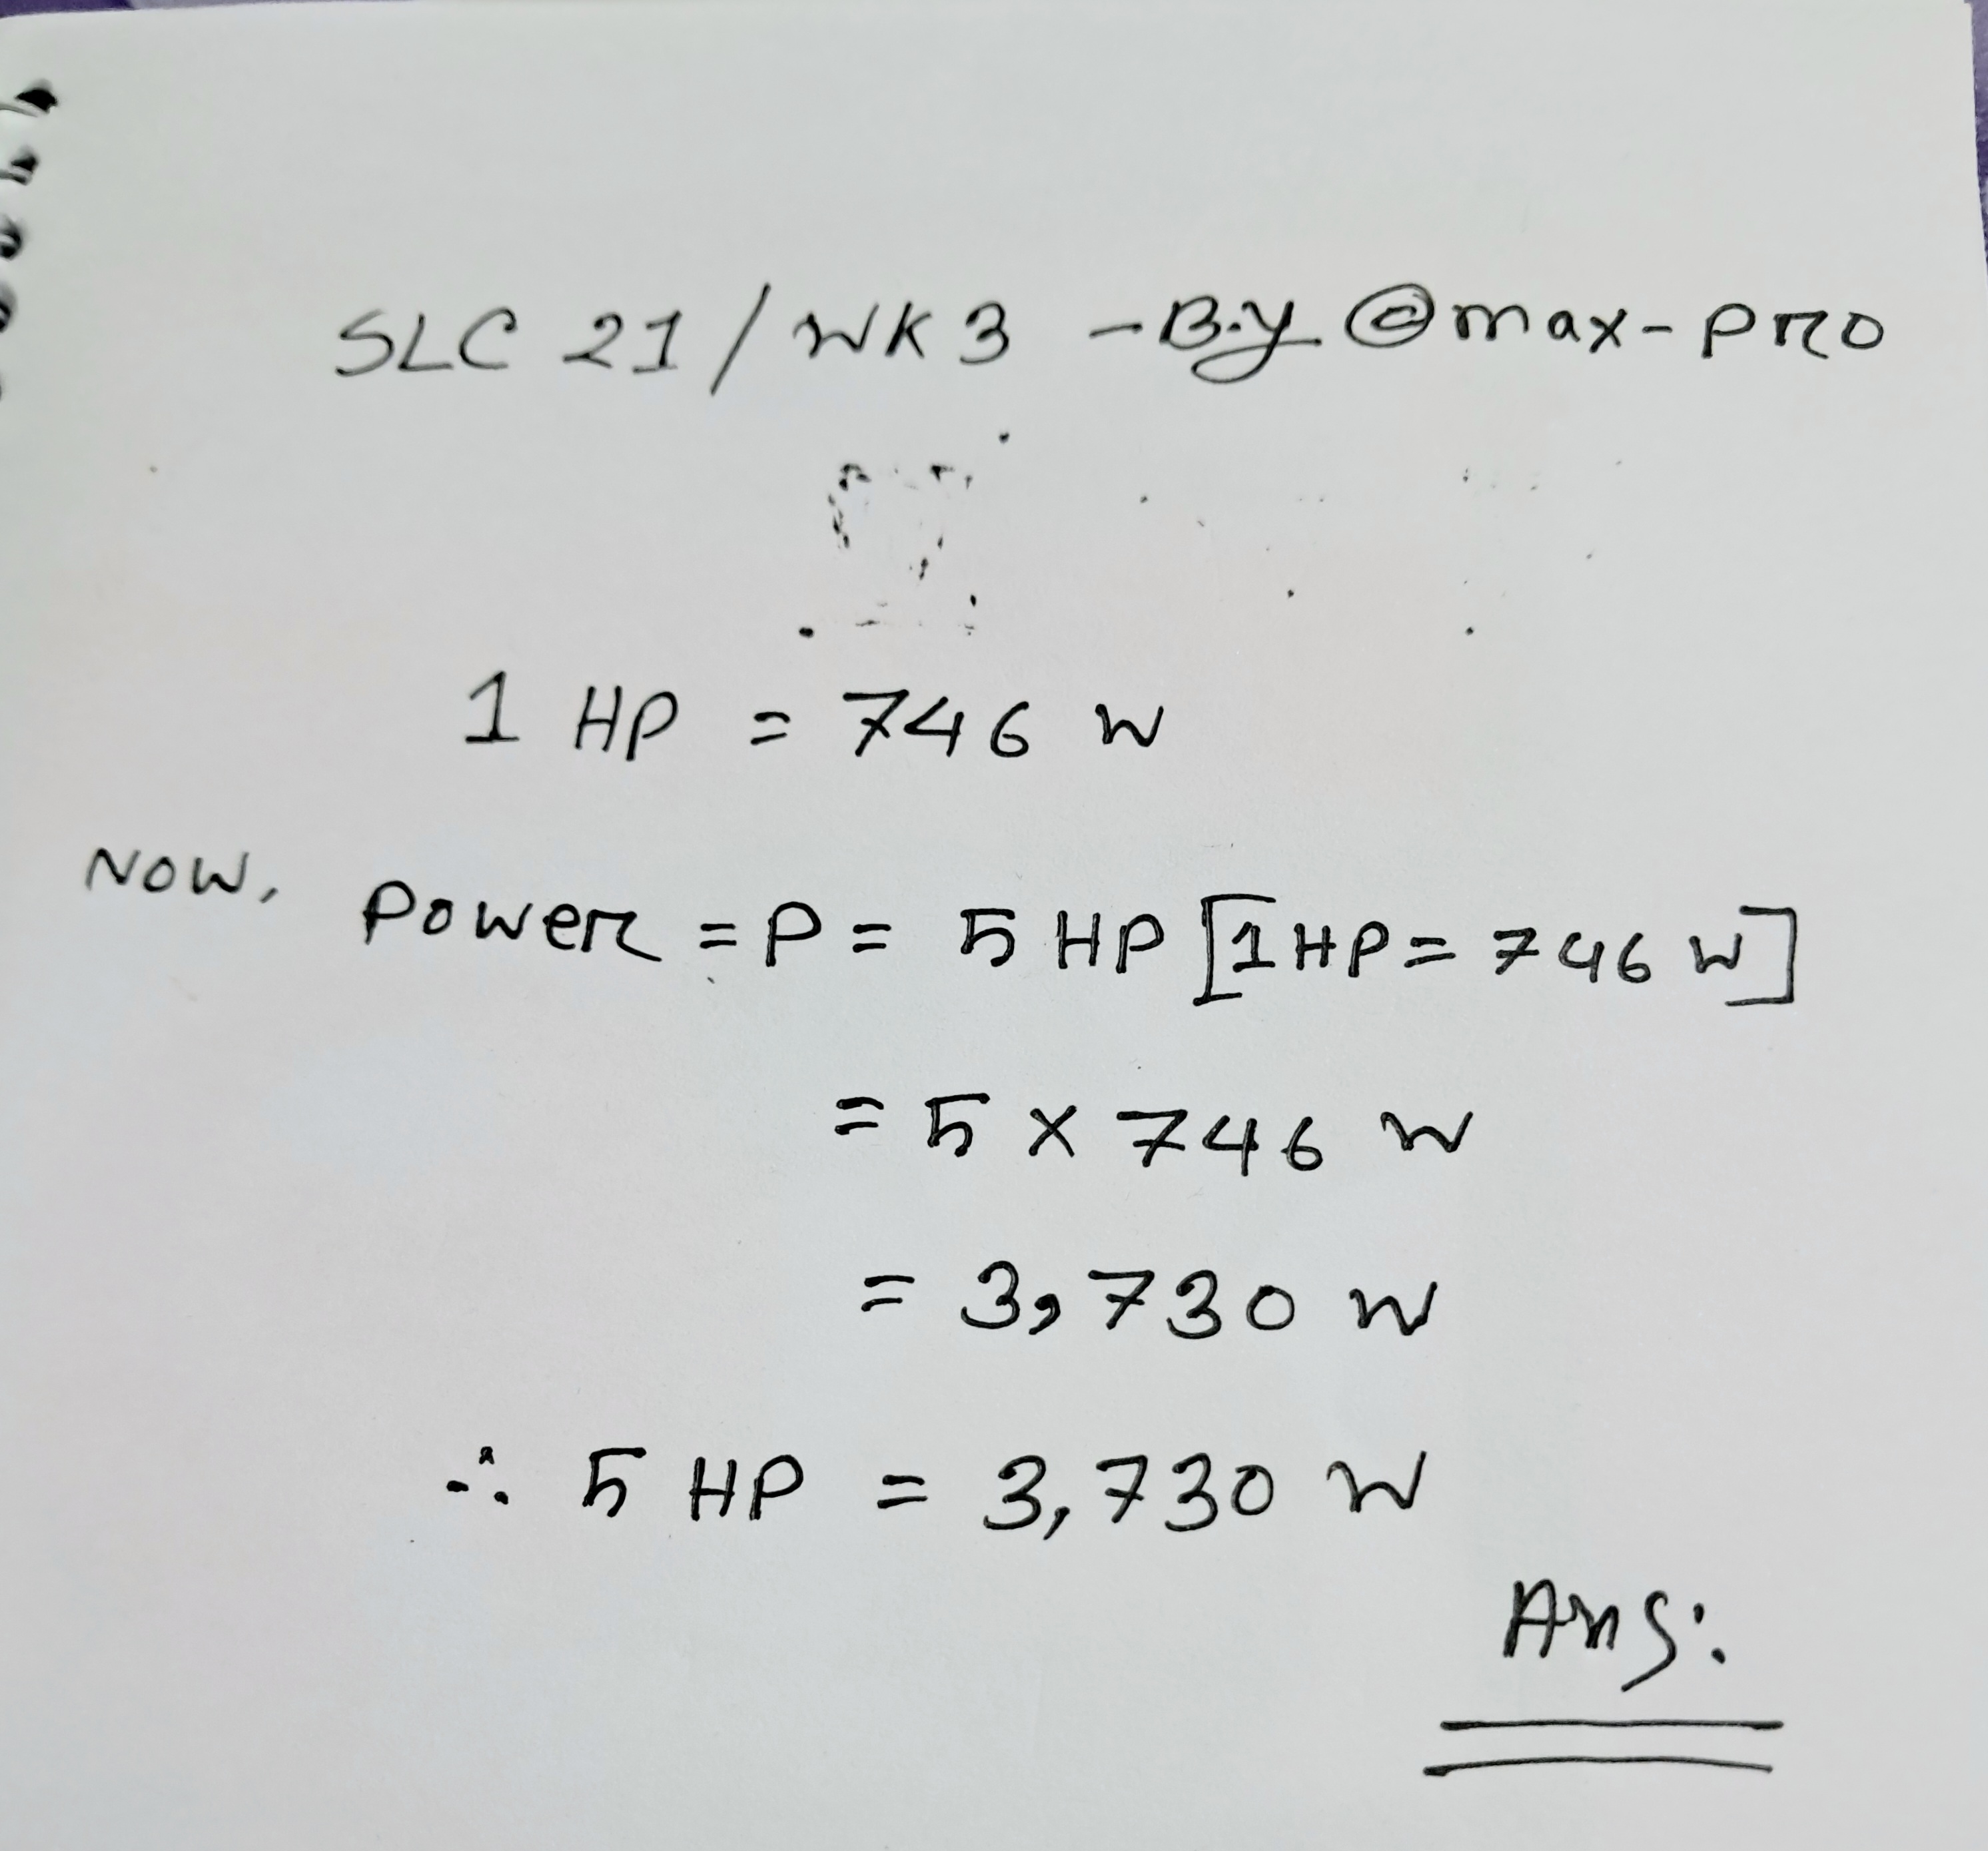 SLC 21/WK3 -By @max-pro
1 HP = 746 W
NOW, Power = P = 5 HP [1HP = 746 W]
= 5 × 746 W
= 3,730 W
∴ 5 HP = 3,730 W
Ans: